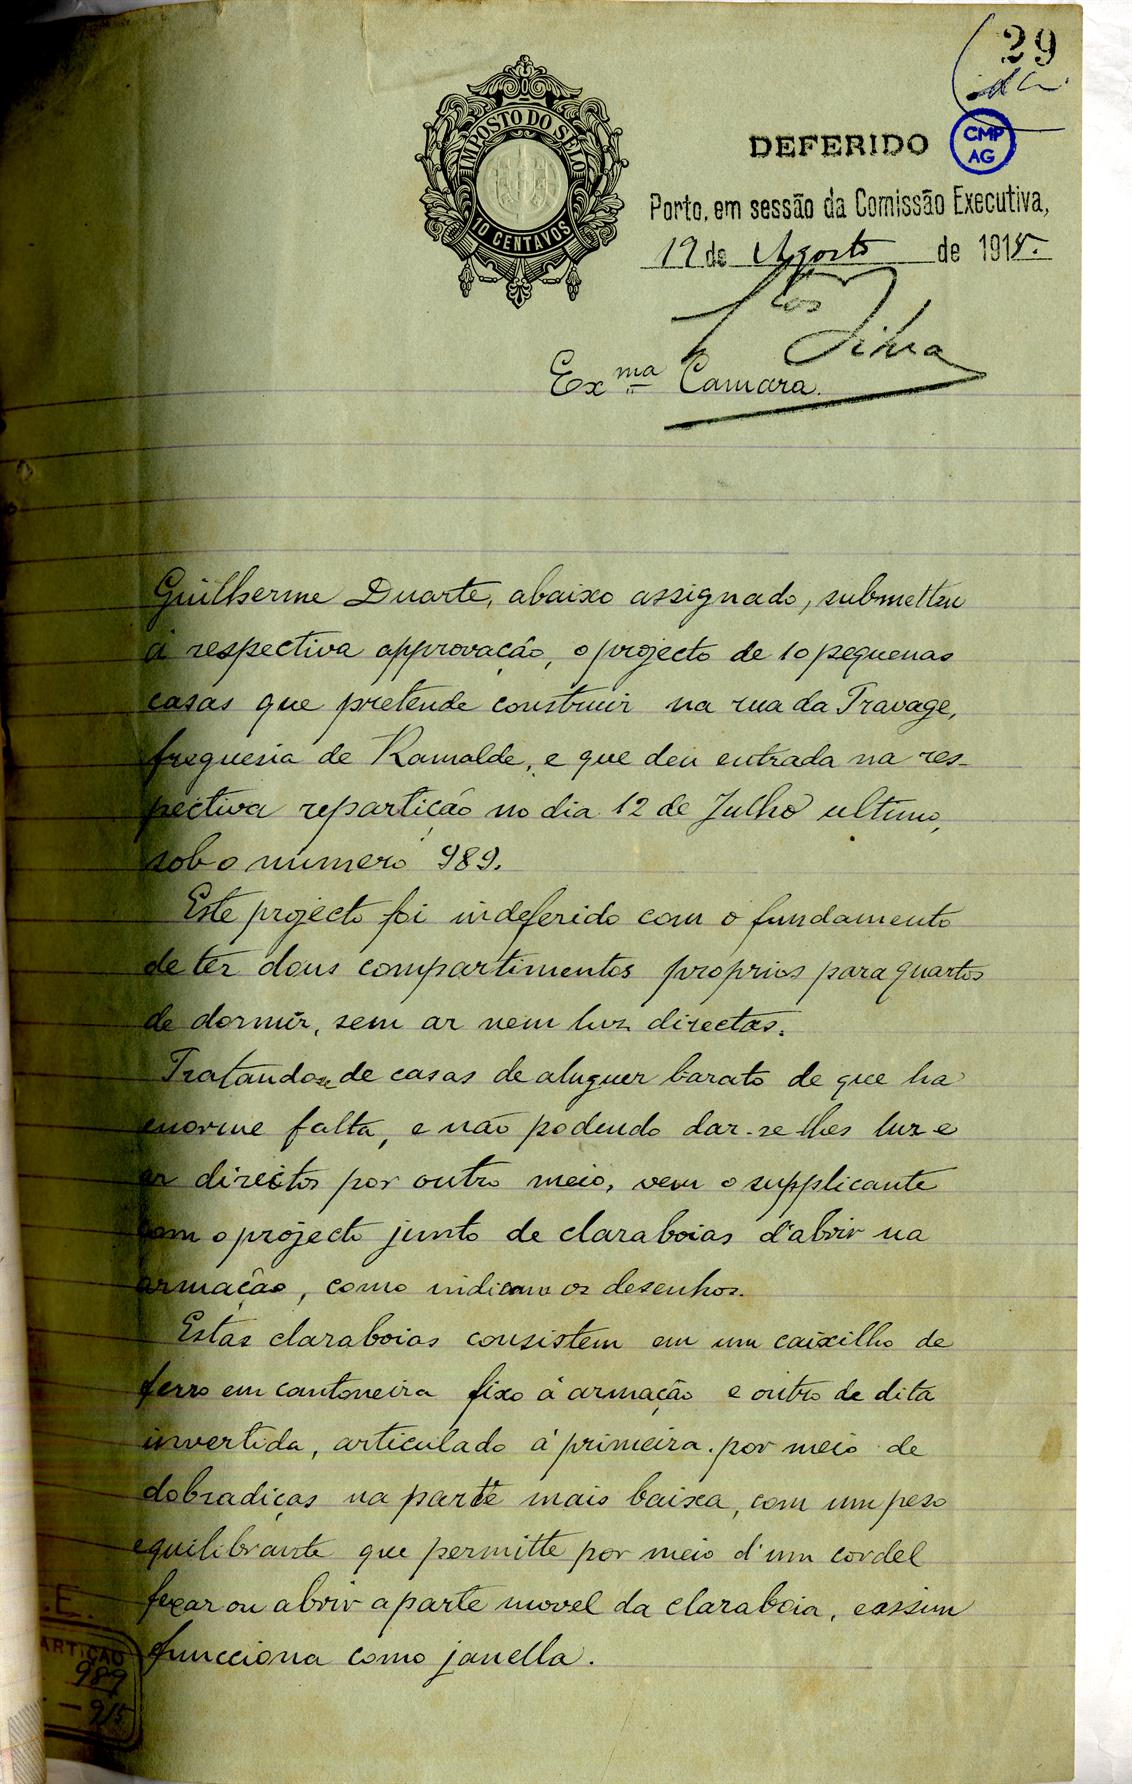 29
DEFERIDO
CMP
AG
IMPOSTO DO SELO
10 CENTAVOS
Porto, em sessão da Comissão Executiva,
19 de Agosto de 1915.
Silva
Exma Camara.
Guilherme Duarte, abaixo assignado, submetteu
á respectiva approvação, o projecto de 10 pequenas
casas que pretende construir na rua da Travage,
freguesia de Ramalde, e que deu entrada na res-
pectiva repartição no dia 12 de Julho ultimo,
sob o numero 989.
Este projecto foi indeferido com o fundamento
de ter dous compartimentos proprios para quartos
de dormir, sem ar nem luz directas.
Tratando-se de casas de aluguer barato de que ha
enorme falta, e não podendo dar-se-lhes luz e
ar directos por outro meio, vem o supplicante
com o projecto junto de claraboias d'abrir na
armação, como indicam os desenhos.
Estas claraboias consistem em um caixilho de
ferro em cantoneira fixo á armação e outro de dita
invertida, articulado á primeira por meio de
dobradiças na parte mais baixa, com um peso
equilibrante que permitte por meio d'um cordel
fexar ou abrir a parte movel da claraboia, e assim
funcciona como janella.
.E.
ARTIÇÃO
989
915